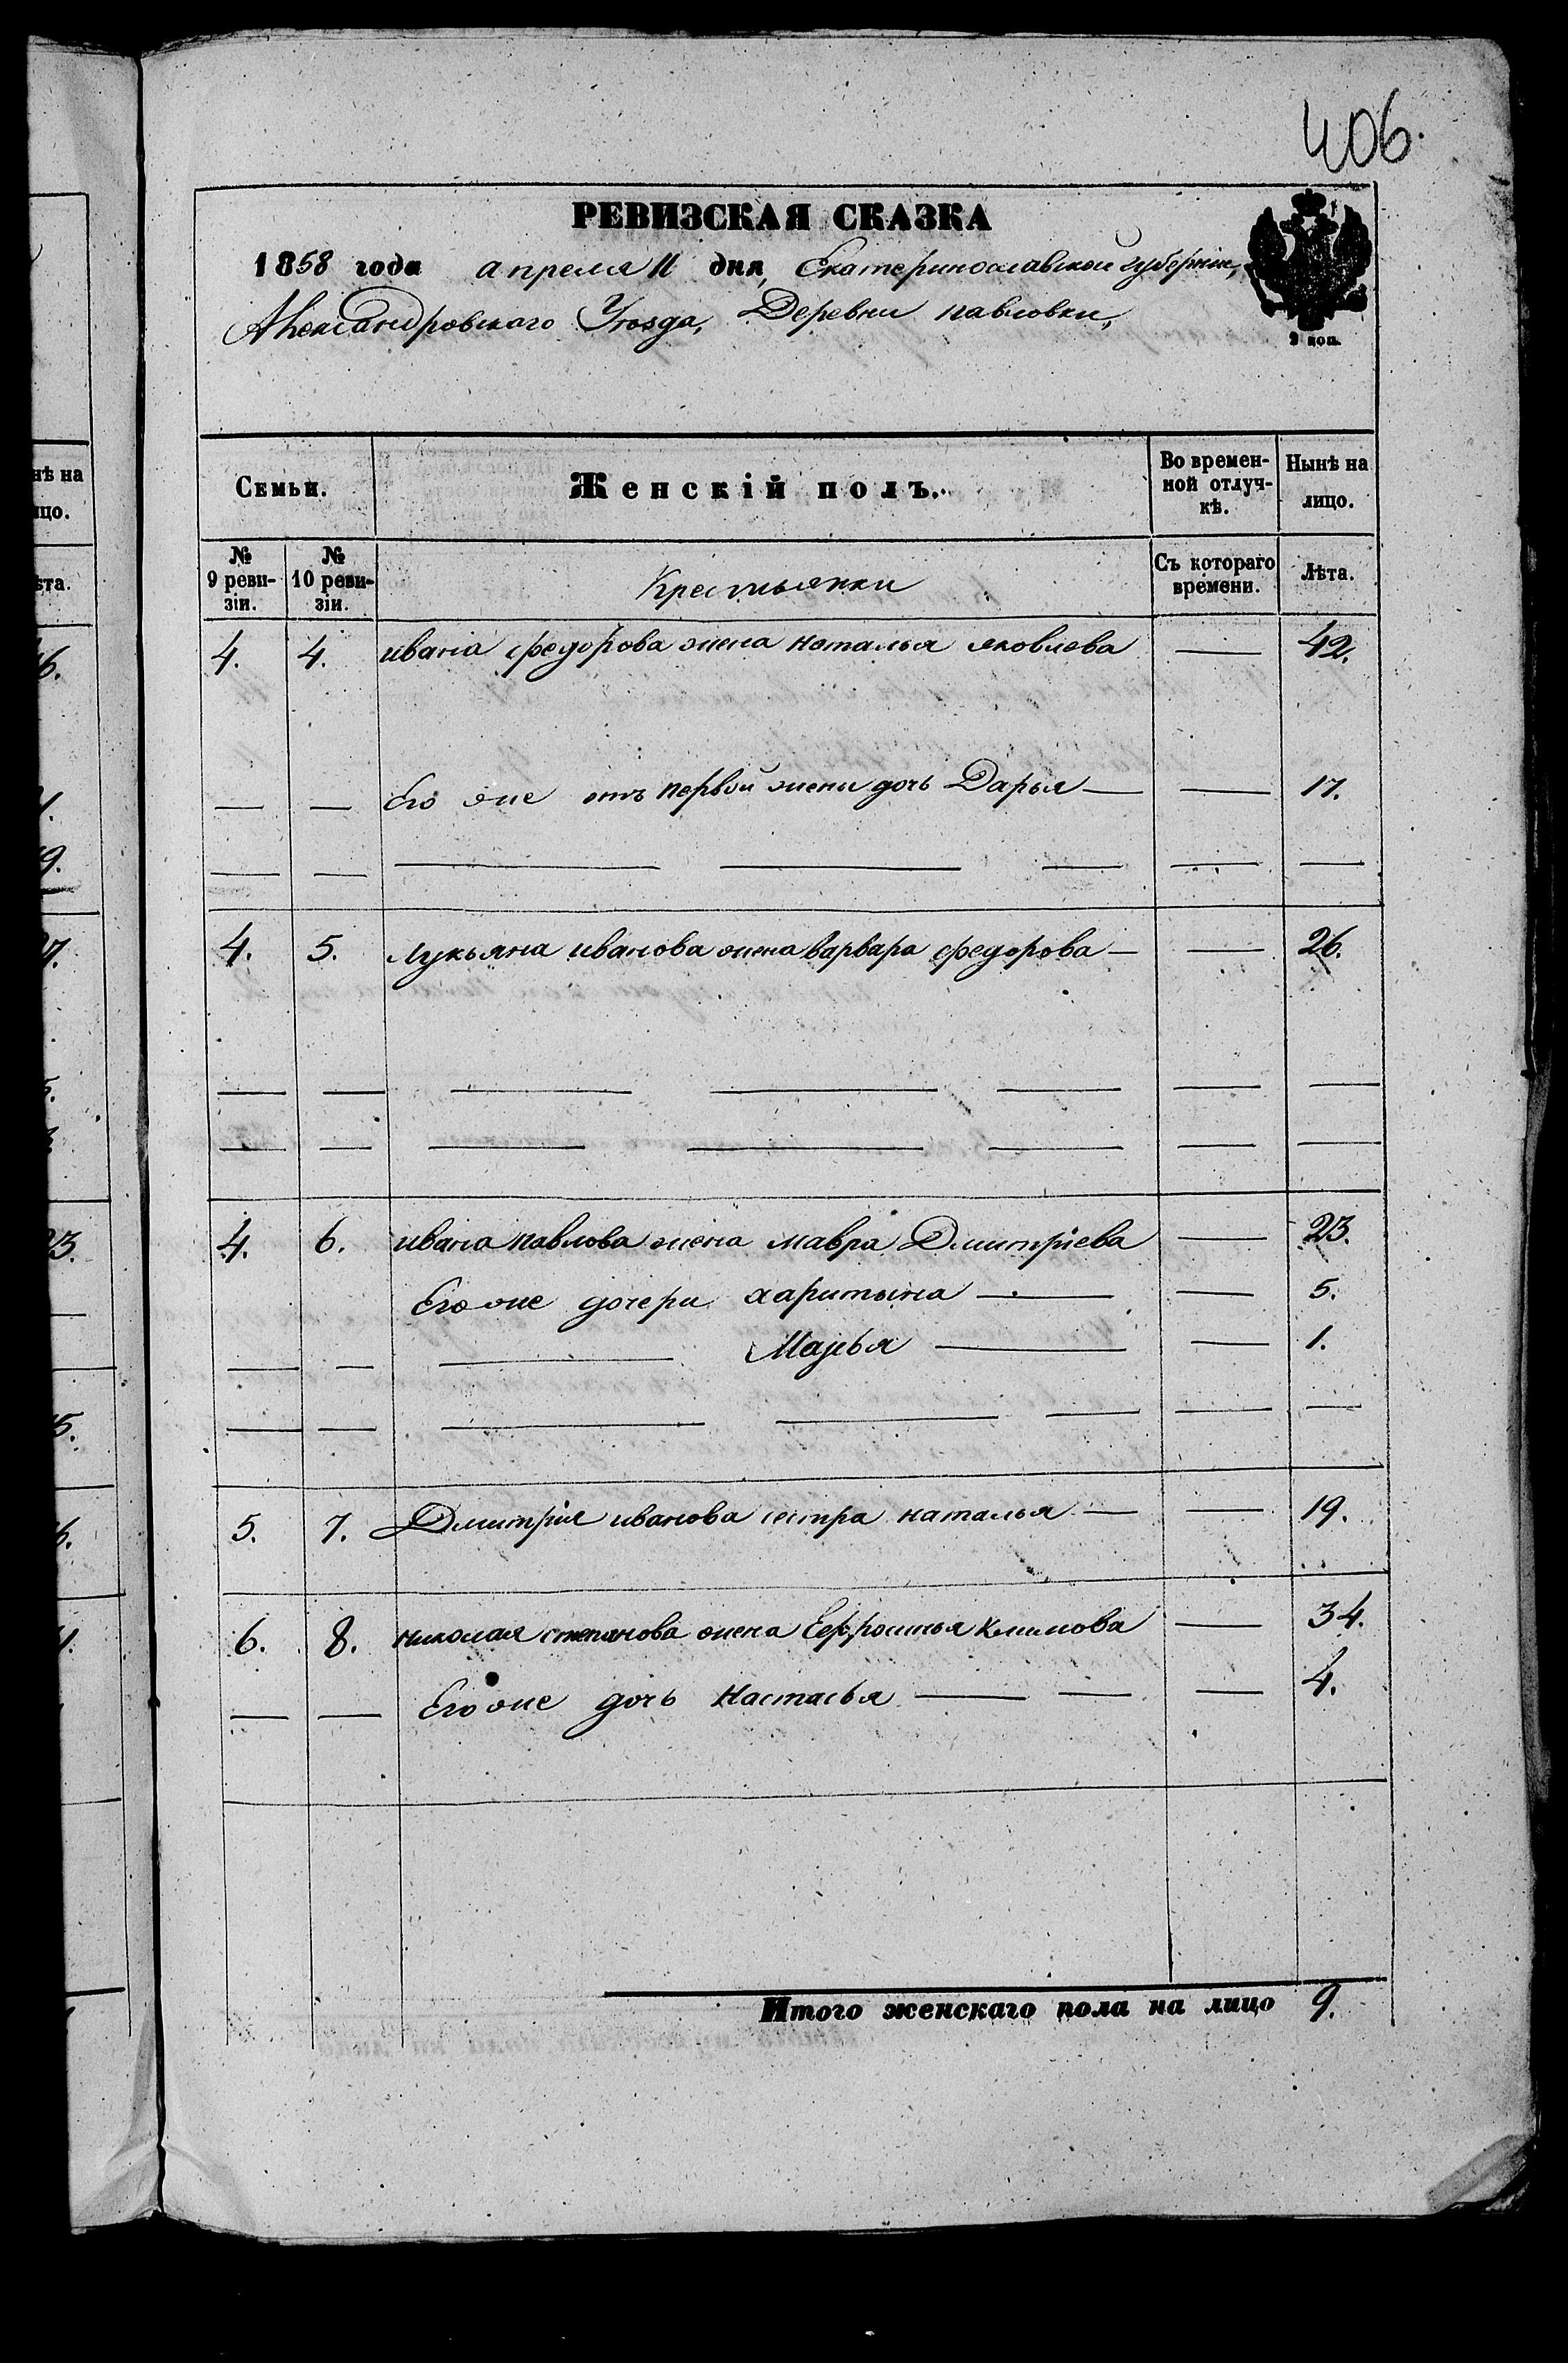 406.
РЕВИЗСКАЯ СКАЗКА
1858 года апреля 11 дня, Екатеринославской губернии,
Александровского Уезда, Деревни павловки,
2 коп.
Семьи. Женскій полъ. Во времен-ной отлуч-кѣ. Нынѣ на лицо.
№ 9 реви-зіи. № 10 реви-зіи. Крестьянки Съ котораго времени. Лѣта.
4. 4. ивана федорова жена наталья яковлева — 42.
— — Его же отъ первой жены дочь Дарья — — 17.
4. 5. лукьяна иванова жена варвара федорова — — 26.
4. 6. ивана павлова жена мавра Дмитріева — 23.
Его же дочери харитына — — 5.
— — — Марья — — 1.
5. 7. Дмитрія иванова сестра наталья — — 19.
6. 8. николая степанова жена Ефросинья климова — 34.
— — Его же дочь Настасья — — — 4.
Итого женскаго пола на лицо 9.